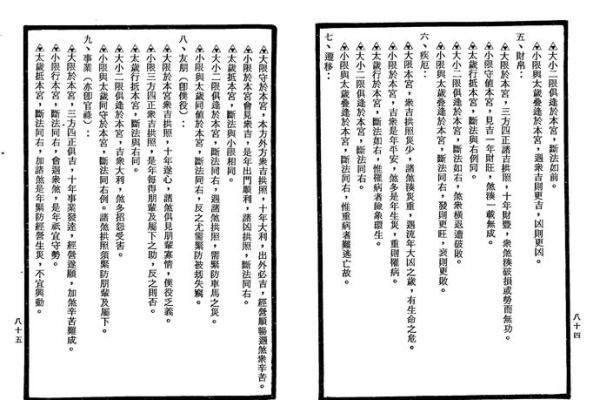 大小二限俱逢於本宮，斷法如前。
小限與太歲疊逢於本宮，遇衆吉則更吉，凶則更凶。
五、財帛：
大限於本宮，三方四正諸吉拱照，十年財豐，衆煞湊破損或勞而無功。
小限守值本宮，見吉一年財旺，煞湊一載無成。
太歲行於本宮，斷法與右例同。
大小二限俱逢於本宮，斷法如右，煞衆橫返遭破敗。
小限與太歲疊逢於本宮，斷法同右，發則更旺，衰則更敗。
六、疾厄：
大限本宮，衆吉拱照災少，諸煞湊災重，遇流年大凶之歲，有生命之危。
小限於本宮，吉衆是年平安，煞多是年生災，重則罹病。
太歲行於本宮，斷法如右，惟罹病者險象環生。
大小二限俱逢於本宮，斷法同右。
小限與太歲疊逢於本宮，斷法同右，惟重病者難逃亡故。
七、遷移：
八十四
大限守於本宮，本方外方衆吉拱照，十年大利，出外必吉，經營順暢遇煞衆辛苦。
小限於本宮會見衆吉，是年出門順利，諸凶拱照，斷法同右。
太歲抵本宮，斷法與小限相同。
大小二限俱逢於本宮，斷法同右，遇諸煞拱照，需緊防車馬之災。
小限與太歲同值於本宮，斷法同右，反之尤需緊防被刼失竊。
八、友朋（卽僕役）：
大限於本宮衆吉拱照，十年遂心，諸煞俱見朋輩寡情，僕役乏義。
小限三方四正衆吉拱照，是年每得朋輩及屬下之助，反之則否。
太歲行抵本宮，斷法與右同。
大小二限俱逢於本宮，吉衆大利，煞多招怨受害。
小限與太歲同守於本宮，斷法同右例。諸煞拱照須緊防朋輩及屬下。
九、事業（亦卽官祿）：
大限於本宮，三方四正俱吉，十年事業發達，經營遂順，加煞辛苦難成。
小限行本宮，斷法同右，會遇衆煞，是年祇宜守勢。
太歲抵本宮，斷法同右，加諸煞是年緊防經營生災，不宜興動。
八十五